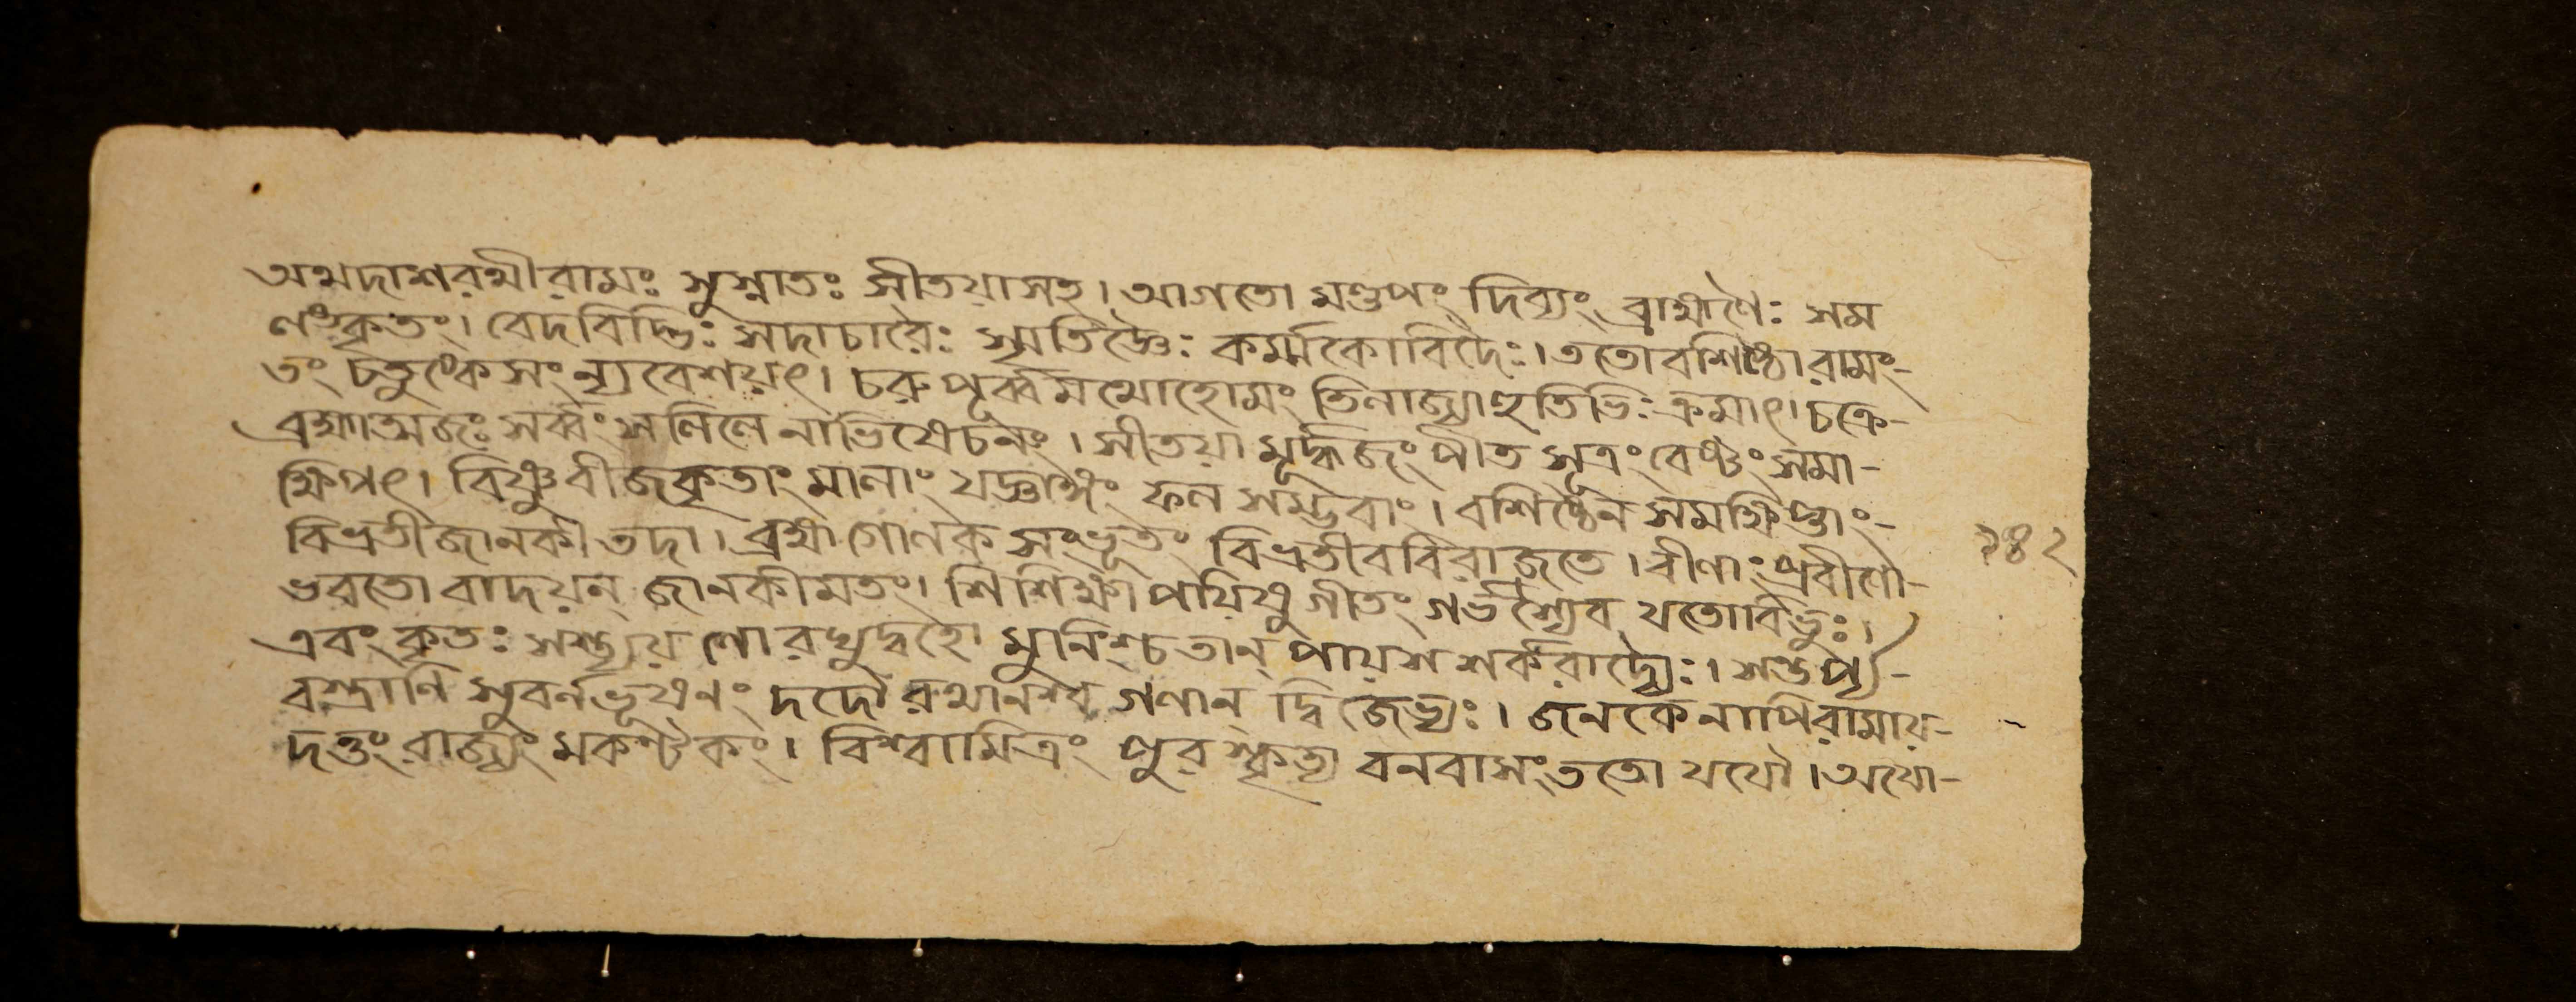 অথদাশরথীরামঃ সুস্নাতঃ সীতয়াসহ। আগতো মণ্ডপং দিব্যং ব্রাহ্মণৈঃ সম
লংকৃতং। বেদবিদ্ভিঃ সদাচারৈঃ স্মৃতিজ্ঞৈঃ কর্ম্মকোবিদৈঃ। ততোবশিষ্ঠোরামং-
তং চতুষ্কেসংন্যবেশয়ৎ। চরুপূর্ব্বমথোহোমং তিলাজ্যাহুতিভিঃ ক্রমাৎ। চক্রে-
ব্রহ্মাঅজঃ সর্ব্বং সলিলেনাভিষেচনং। সীতয়া মূর্দ্ধজং পীত সূত্রং বেষ্টং সমা-
ক্ষিপৎ। বিষ্ণুবীজকৃতাং মালাং যজ্ঞাঙ্গং ফল সম্ভবাং। বশিষ্ঠেন সমক্ষিপ্তাং-
বিভ্রতীজানকী তদা। ব্রহ্মগোলক সংভূতং বিভ্রতীববিরাজতে। বীণাং প্রবীণো-
ভরতো বাদয়ন্ জানকীমতং। শিশিক্ষাপয়িষু গীতং গর্ভশ্যেব যতোবিভুঃ।
এবং কৃতঃ স্বস্ত্যয়ণো রঘুদ্বহো মুনিংশ্চতান্ পায়স শর্করাদ্যৈঃ। সন্তর্প্য-
বস্ত্রাণি সুবর্নভূষণং দদৌ রথানশ্ব গণান্ দ্বিজেভ্যঃ। জনকেনাপিরামায়-
দত্তং রাজ্যং মকণ্টকং। বিশ্বামিত্রং পুরস্কৃত্য বনবাসং ততো যযৌ। অযো-
১৪২